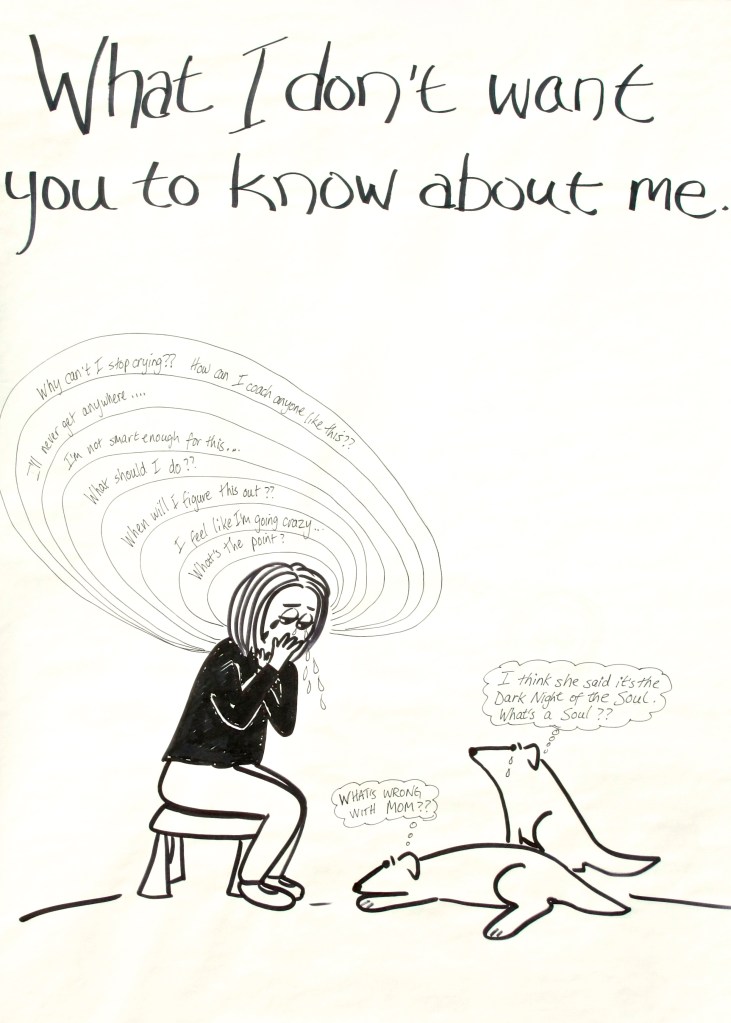 What I don't want
you to know about me.
Why can't I stop crying?? How can I coach anyone like this??
I'll never get anywhere ....
I'm not smart enough for this...
What should I do??
When will I figure this out??
I feel like I'm going crazy...
What's the point?
I think she said it's the
Dark Night of the Soul.
What's a Soul??
WHAT'S WRONG
WITH MOM??